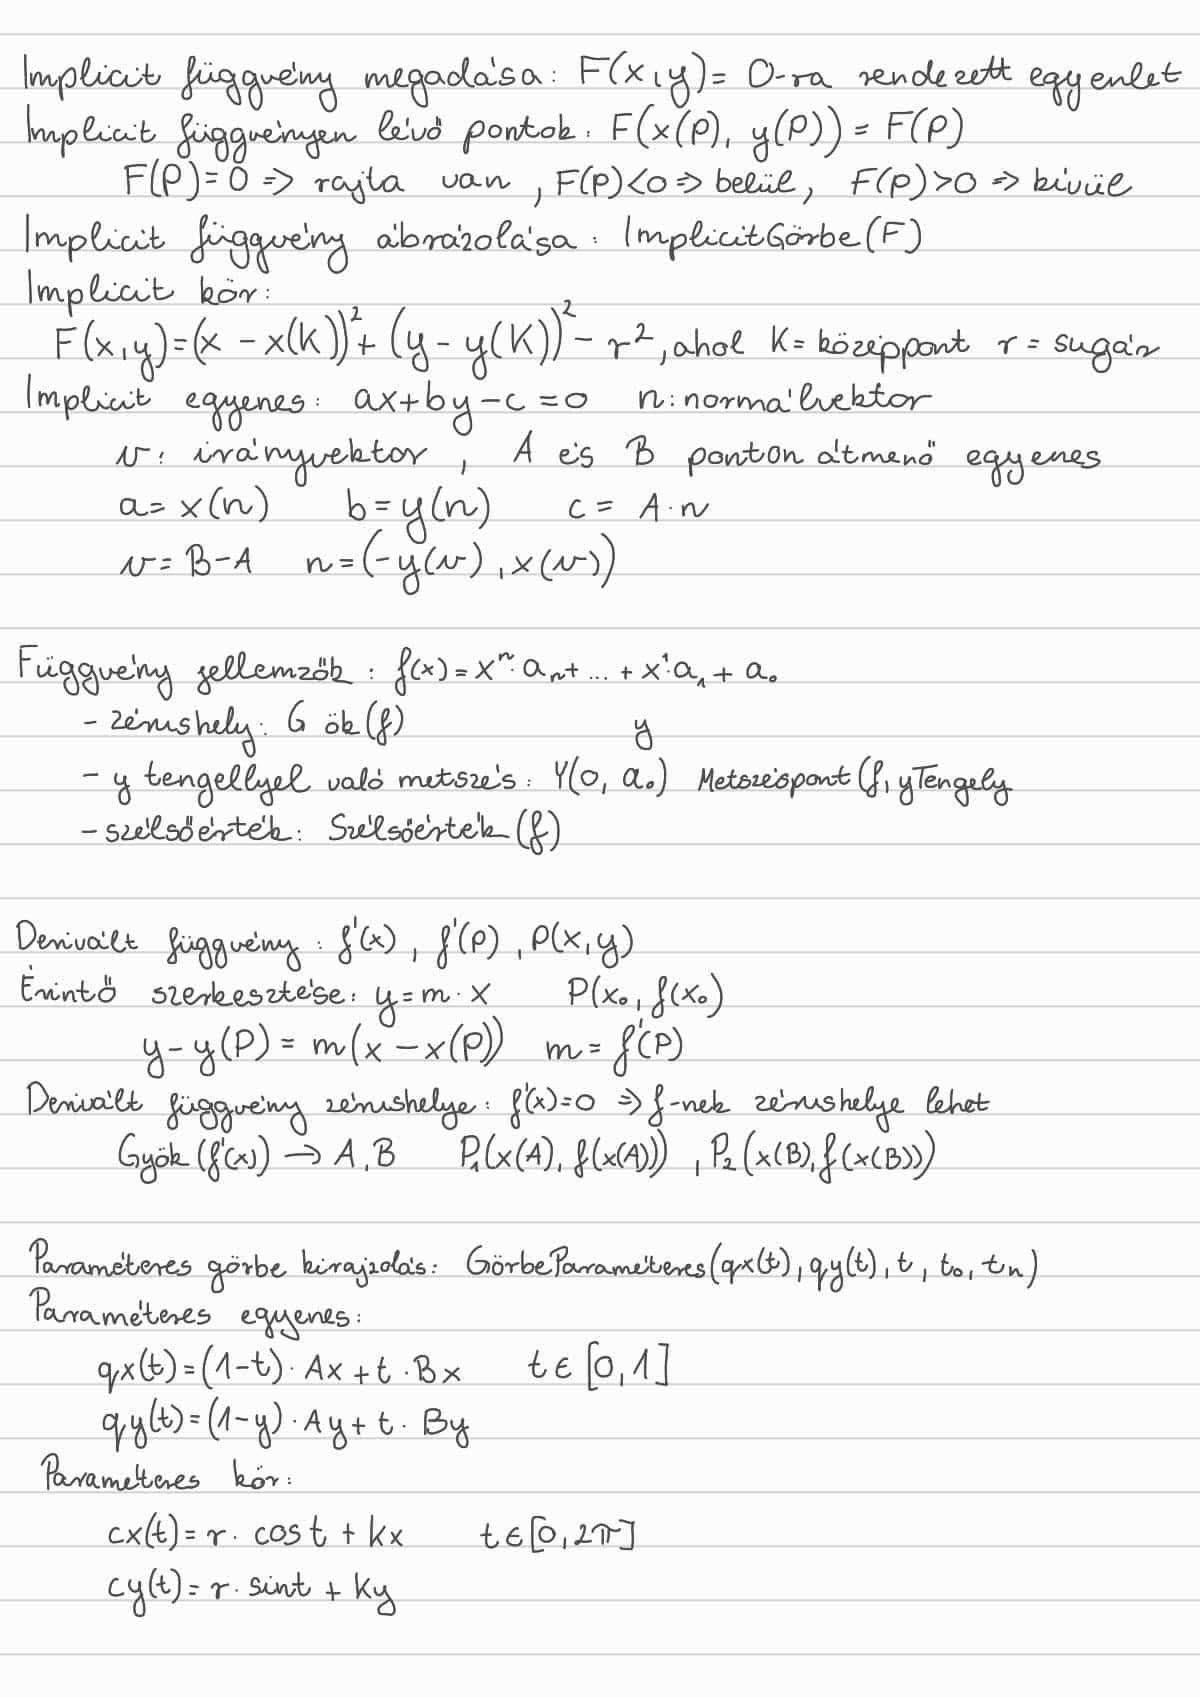 Implicit függvény megadása: F(x,y)= 0-ra rendezett egyenlet
Implicit függvényen lévő pontok: F(x(P), y(P)) = F(P)
F(P)=0 => rajta van, F(P)<0 => belül, F(P)>0 => kívül
Implicit függvény ábrázolása: ImplicitGörbe(F)
Implicit kör:
F(x,y)=(x - x(K))² + (y - y(K))² - r², ahol K=középpont r=sugár
Implicit egyenes: ax+by-c=0 n: normálvektor
v: irányvektor, A és B ponton átmenő egyenes
a= x(n) b= y(n) c= A·n
v= B-A n=(-y(v), x(v))
Függvény jellemzők: f(x)= xⁿ·aₙ+ ... + x¹·a₁ + a₀
- zérushely: G ök(f) y
- y tengellyel való metszés: Y(0, a₀) Metszéspont(f, yTengely
- szélsőérték: Szélsőérték(f)
Derivált függvény: f'(x), f'(P), P(x,y)
Érintő szerkesztése: y=m·x P(x₀, f(x₀)
y-y(P) = m(x-x(P)) m= f'(P)
Derivált függvény zérushelye: f'(x)=0 => f-nek zérushelye lehet
Gyök(f'(x)) → A,B P₁(x(A), f(x(A))), P₂(x(B), f(x(B)))
Paraméteres görbe kirajzolás: GörbeParaméteres(qx(t), qy(t), t, t₀, tn)
Paraméteres egyenes:
qx(t)=(1-t)·Ax+t·Bx t∈[0,1]
qy(t)=(1-y)·Ay+t·By
Paraméteres kör:
cx(t)=r·cost+kx t∈[0,2π]
cy(t)=r·sint+ky